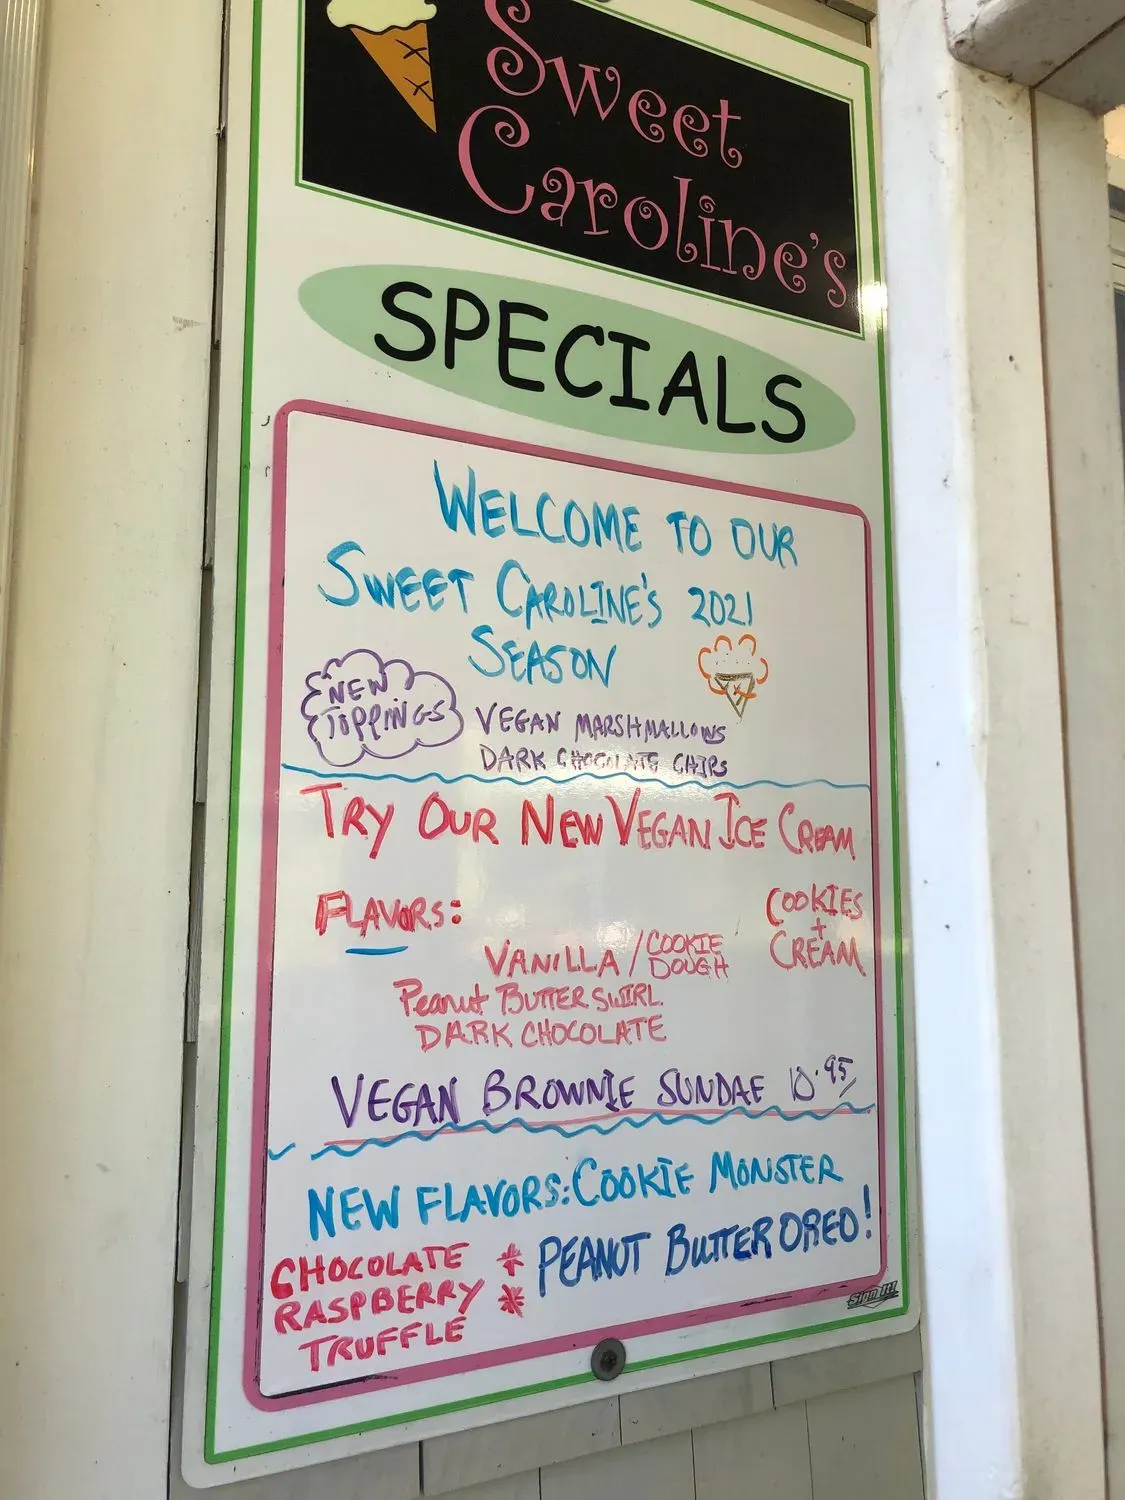 Sweet
Caroline's
SPECIALS
WELCOME TO OUR
SWEET CAROLINE'S 2021
SEASON
NEW
TOPPINGS
VEGAN MARSHMALLOWS
DARK CHOCOLATE CHIPS
TRY OUR NEW VEGAN ICE CREAM
FLAVORS:
VANILLA / COOKIE DOUGH
COOKIES
+
CREAM
Peanut BUTTER SWIRL
DARK CHOCOLATE
VEGAN BROWNIE SUNDAE 10.95
NEW FLAVORS: COOKIE MONSTER
CHOCOLATE
RASPBERRY
TRUFFLE
* PEANUT BUTTER OREO!
*
Sign It!